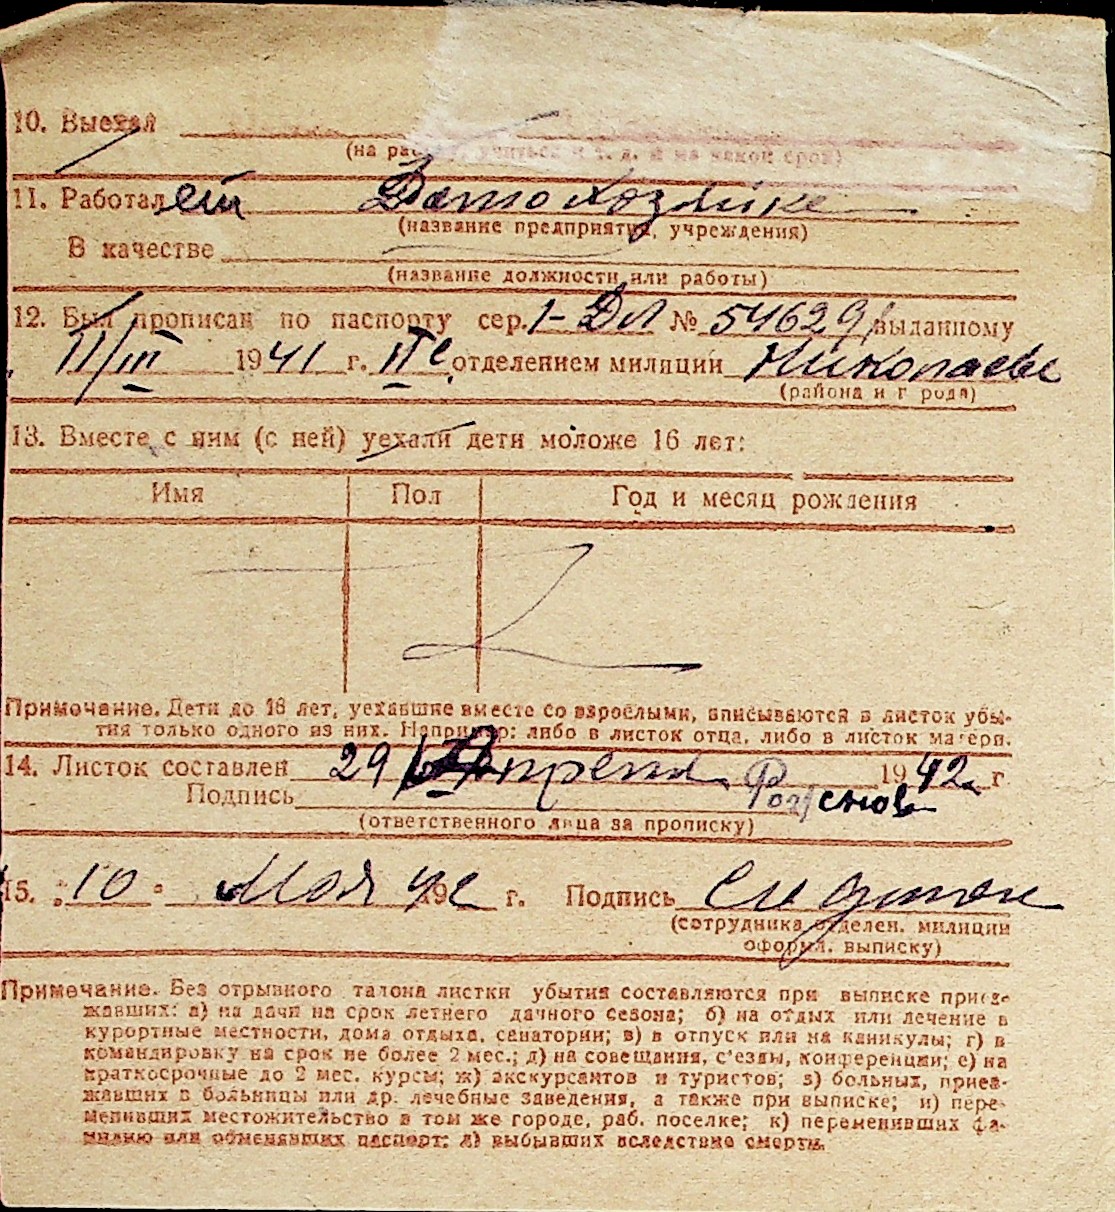 10. Выехал
(на работу, учиться и т. д. и на какой срок)
11. Работал ет Домохозяйке
(название предприятия, учреждения)
В качестве
(название должности или работы)
12. Был прописан по паспорту сер. 1-ДЛ № 54629 выданному
11/III 1941 г. II е отделением милиции Николаеве
(района и города)
13. Вместе с ним (с ней) уехали дети моложе 16 лет:
Имя Пол Год и месяц рождения
Примечание. Дети до 16 лет, уехавшие вместе со взрослыми, вписываются в листок убы-
тия только одного из них. Например: либо в листок отца, либо в листок матери.
14. Листок составлен 29 Апреля 1942 г
Подпись
(ответственного лица за прописку)
15. "10" Мая 1942 г. Подпись
(сотрудника отделен. милиции
оформл. выписку)
Примечание. Без отрывного талона листки убытия составляются при выписке приез-
жавших: а) на дачи на срок летнего дачного сезона; б) на отдых или лечение в
курортные местности, дома отдыха, санатории; в) в отпуск или на каникулы; г) в
командировку на срок не более 2 мес.; д) на совещания, с'езды, конференции; е) на
краткосрочные до 2 мес. курсы; ж) экскурсантов и туристов; з) больных, приез-
жавших в больницы или др. лечебные заведения, а также при выписке; и) пере-
менивших местожительство в том же городе, раб. поселке; к) переменивших фа-
милию или обменявших паспорт; л) выбывших вследствие смерти.